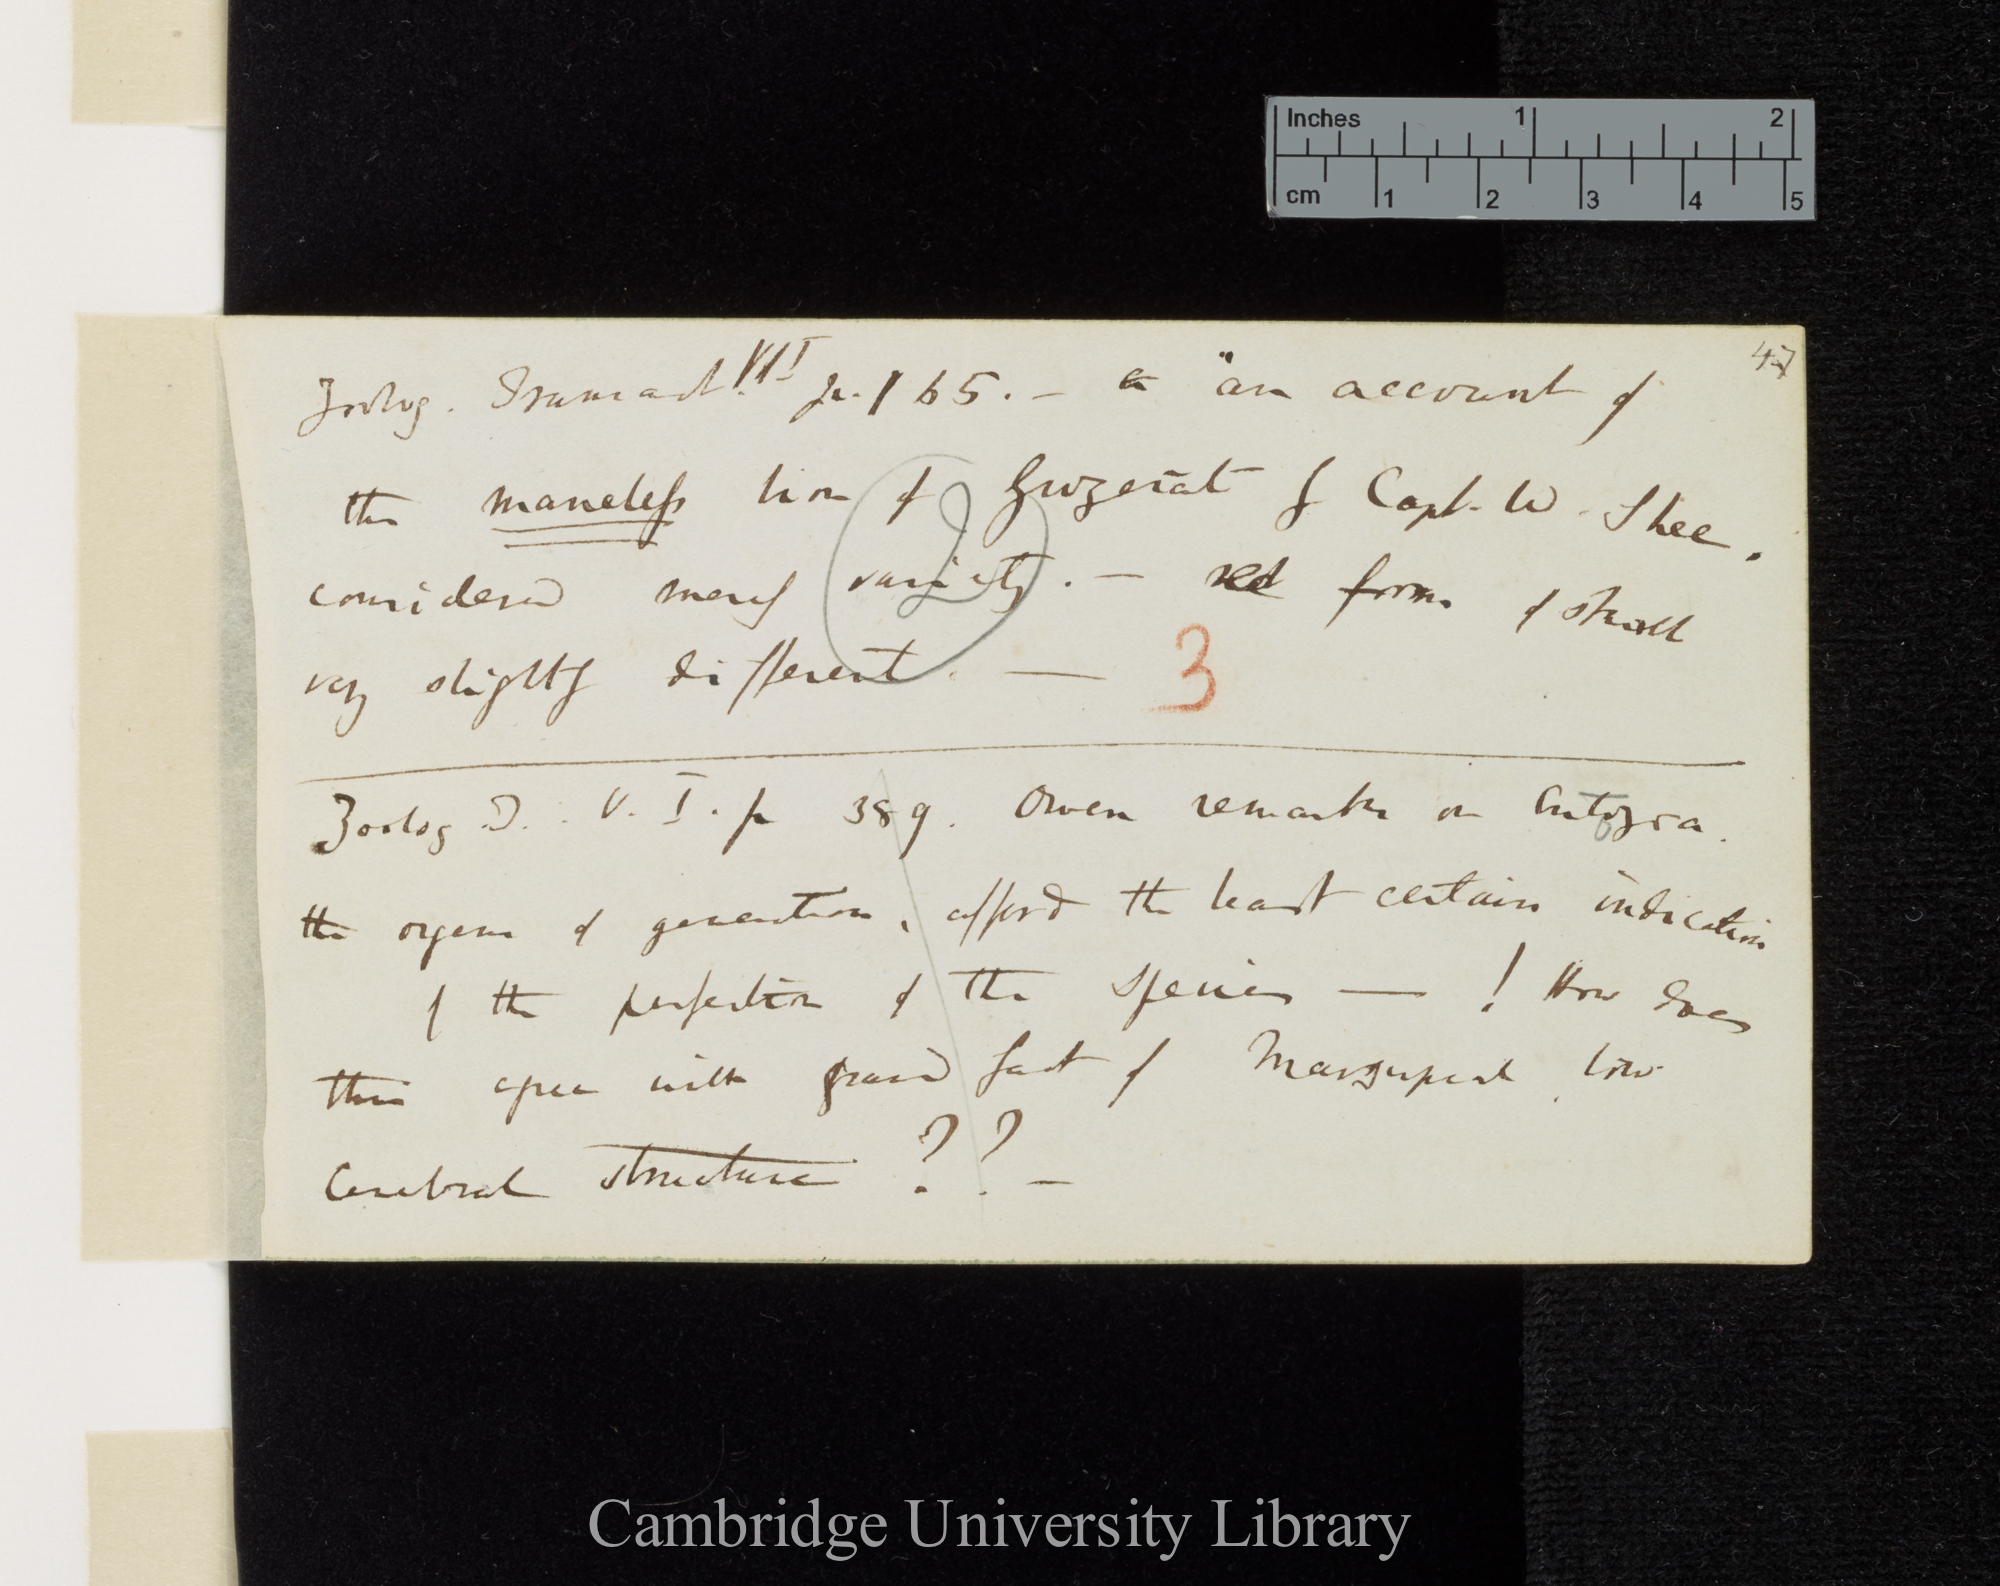 Inches 1 2
cm 1 2 3 4 5
47
Zoolog. Transact. VII p. 165. — a "an account of
the maneless lion of Guzerat by Capt. W. Shee.
considered merely variety. — red form of skull
very slightly different. — 3
2
Zoolog. T. V. I. p 389. Owen remarks on Entozoa.
the organs of generation, afford the least certain indication
of the perfection of the species — ! How does
this agree with grand fact of Marsupial low
cerebral structure ?? —
Cambridge University Library